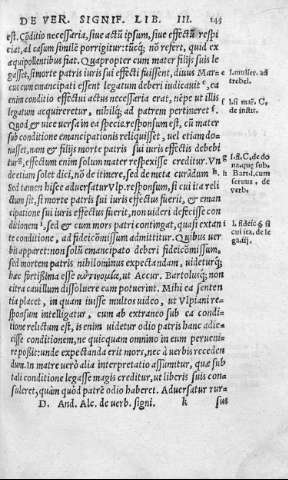 DE VER. SIGNIF. LIB. III. 145
est. Cõditio necessaria, siue actũ ipsum, siue effectũ respi
ciat, al casum similẽ porrigitur: tũcq; nõ refert, quid ex
æquipollentibus fiat. Quapropter cum mater filijs suis le
gasset, si morte patris iuris sui effecti fuissent, diuus Mar-
cus cum emancipati essent legatum deberi iudicauit s, ea
enim conditio effectui actus necessaria erat, nẽpe ut illis
legatum acquireretur, nihilq; ad patrem pertineret
Quod & uice uersa in ea specie responsum est, si mater
sub conditione emancipationis reliquisset, uel etiam do-
nasset, nam & filijs morte patris sui iuris effectis debebi
tur, effectum enim solum mater respexisse creditur. Vn
dentiam solet dici, nõ de itinere, sed de meta curãdum
Sed tamen hisce aduersatur Vlp. responsum, si cui ita reli
ctum sit, si morte patris sui iuris fuerit effectus, & eman
cipatione sui iuris effectus fuerit, non uideri defecisse con
ditionem i, sed & cum mors patri contingat, quasi extan
te conditione, ad fideicõmissum admittitur. Quibus uer
bis apparet: non solũ emancipato deberi fideicõmissum,
sed mortem patris nihilominus expectandam, uideturq;
hæc fortissima esse ut Accur. Bartolusq; non
citra cauillum dissoluere eam potuerint. Mihi ea senten
tia placet, in quam iuisse multos uideo, ut Vlpiani re-
sponsum intelligatur, cum ab extraneo sub ea conditio
ne relictum est, is enim uidetur odio patris hanc adie-
cisse conditionem, ne quicquam omnino in eum perueni-
re possit: unde expectanda erit mors, nec à uerbis receden
dum. In matre uerò alia interpretatio assumitur, quæ sub
tali conditione legasse magis creditur, ut liberis suis con-
suleret, quàm quòd patrẽ odio haberet. Aduersatur rur-
D. And. Alc. de uerb. signi. k sus
f l. mulier. ad
trebel.
g l. si mat. C.
de instit.
h l. fi. C. de do
naq; sub
Bartol. cum
seruus, de
verb.
i l. fideic. § si
cui ita, de le
ga. iij.